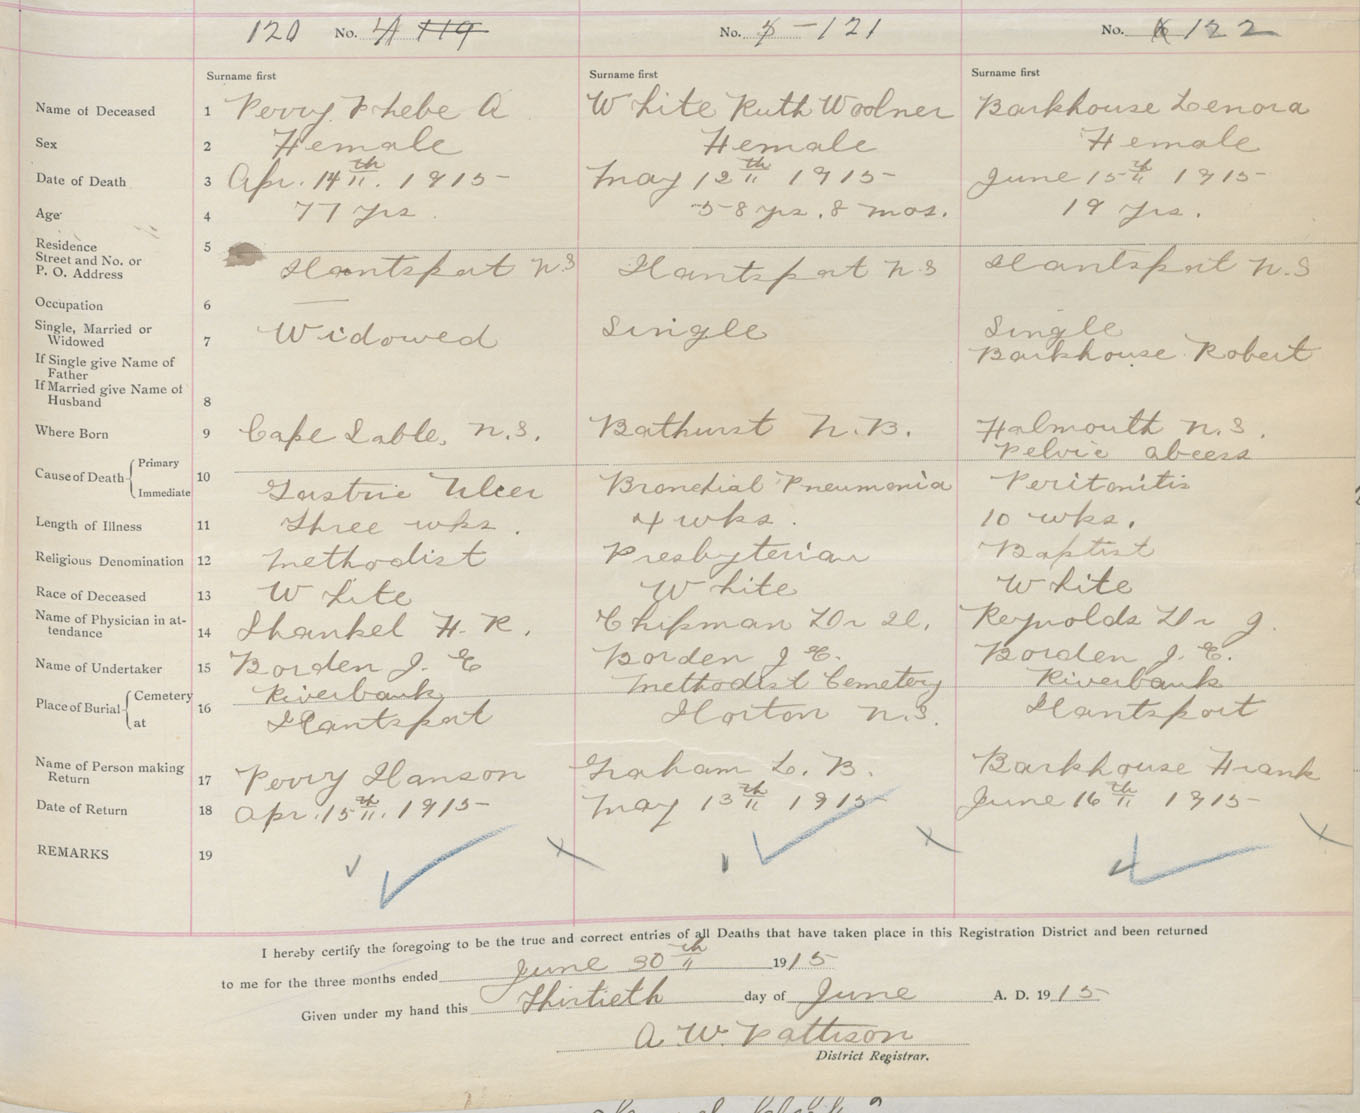 120 No. 4 119 No. 5 - 121 No. 6 122
Surname first Surname first Surname first
Name of Deceased 1 Perry Phebe A White Ruth Woolner Barkhouse Lenora
Sex 2 Female Female Female
Date of Death 3 Apr. 14th. 1915- May 12th 1915- June 15th 1915-
Age 4 77 yrs. 58 yrs. 8 mos. 19 yrs.
Residence 5
Street and No. or
P. O. Address Hantsport N.S Hantsport N S Hantsport N.S
Occupation 6 —
Single, Married or
Widowed 7 Widowed Single Single
If Single give Name of
Father Barkhouse Robert
If Married give Name of
Husband 8
Where Born 9 Cape Sable, N.S. Bathurst N.B. Falmouth N.S.
Cause of Death Primary 10 Pelvic abcess
Immediate Gastric Ulcer Bronchial Pneumonia Peritonitis
Length of Illness 11 Three wks. 4 wks. 10 wks.
Religious Denomination 12 Methodist Presbyterian Baptist
Race of Deceased 13 White White White
Name of Physician in at-
tendance 14 Shankel F. R. Chipman Dr Reynolds Dr J.
Name of Undertaker 15 Borden J. E Borden J E. Borden J. E.
Place of Burial Cemetery 16 Riverbank Methodist Cemetery Riverbank
at Hantsport Horton N.S. Hantsport
Name of Person making
Return 17 Perry Hanson Graham L. B. Barkhouse Frank
Date of Return 18 Apr. 15th. 1915- May 13th 1915- June 16th 1915-
REMARKS 19
I hereby certify the foregoing to be the true and correct entries of all Deaths that have taken place in this Registration District and been returned
to me for the three months ended June 30th 1915
Given under my hand this Thirtieth day of June A. D. 1915
A. W. Pattison
District Registrar.